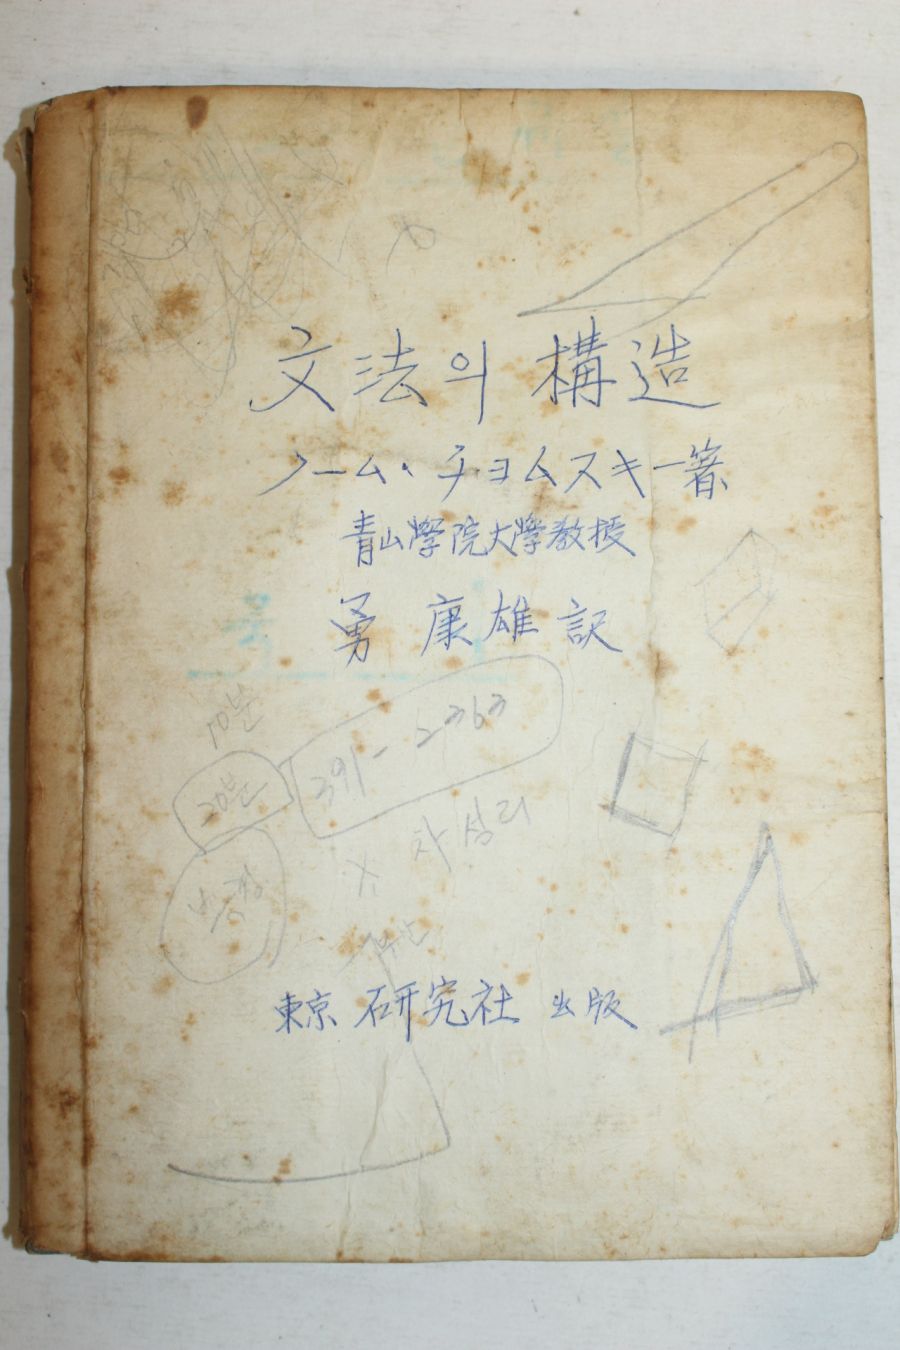 文法의 構造
ノーム・チョムスキー著
青山學院大學教授
勇 康雄 訳
10분
20분
391-2363
차성리
東京 研究社 出版